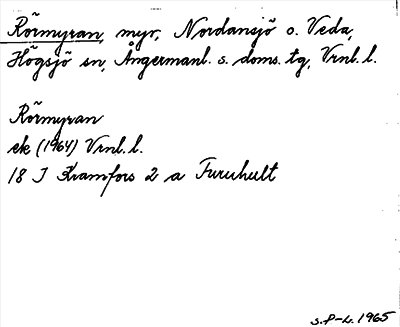 Rörmyran, myr, Nordansjö o. Veda,
Högsjö sn, Ångermanl. s. doms. tg, Vrnl. l.
Rörmyran
ek (1964) Vrnl. l.
18 J Kramfors 2 a Furuhult
S.P-L. 1965